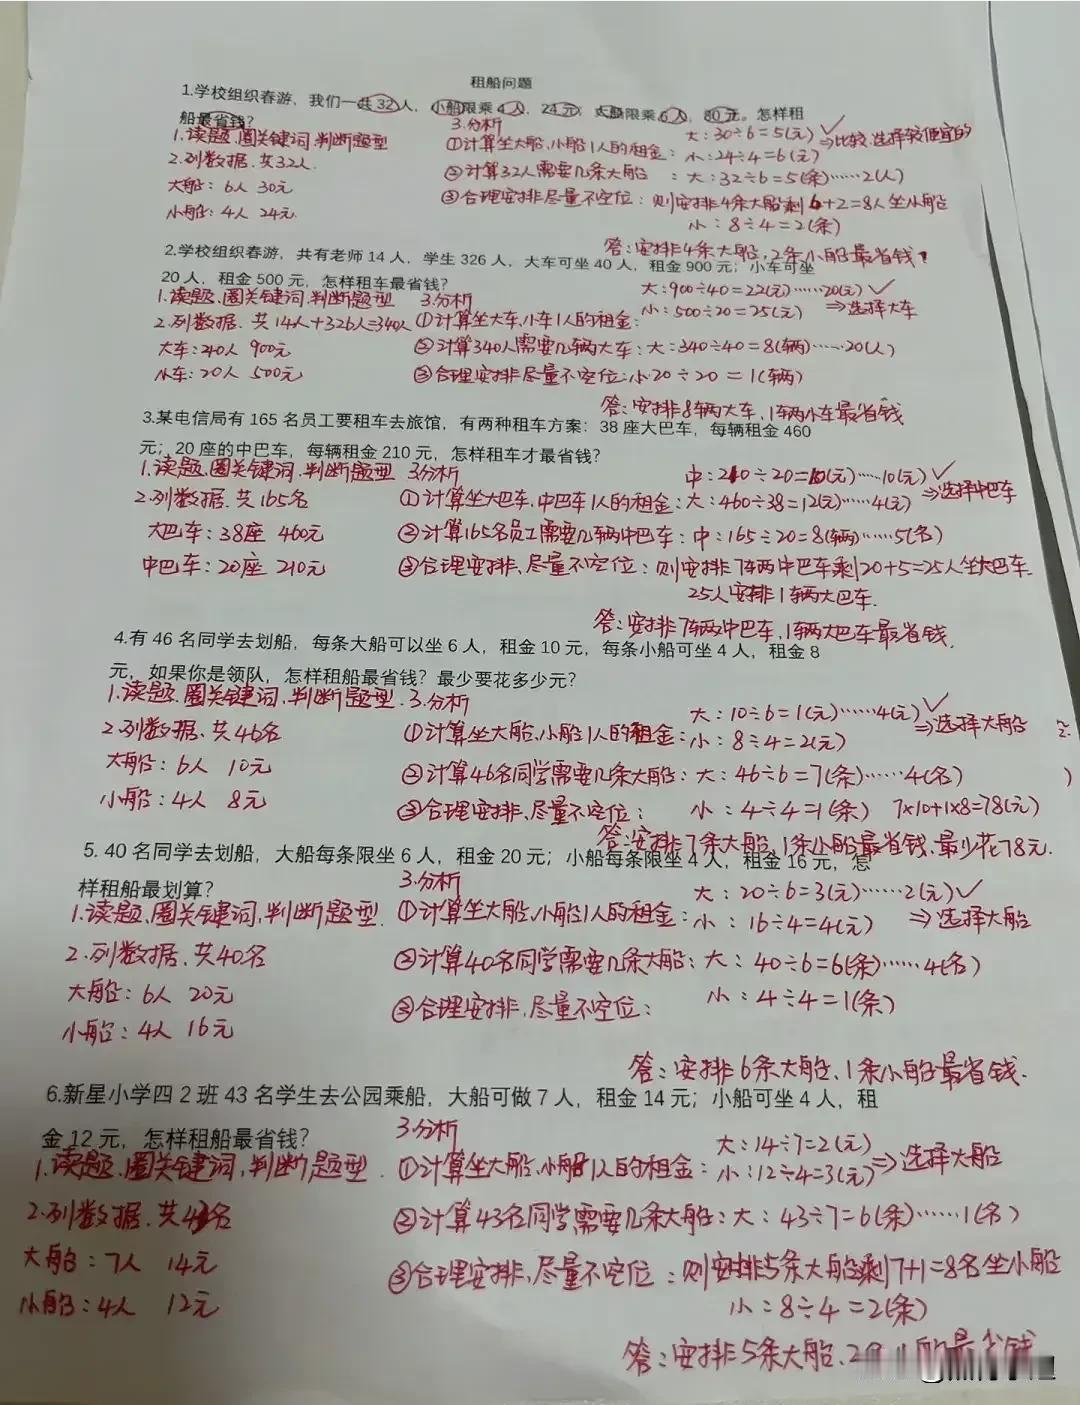 租船问题
1.学校组织春游，我们一共32人，小船限乘4人，24元；大船限乘6人，30元。怎样租
船最省钱？
1.读题、圈关键词、判断题型
2.列数据、共32人.
大船：6人 30元
小船：4人 24元
3.分析
①计算坐大船、小船1人的租金：
大：30÷6=5(元)✓
小：24÷4=6(元)
⇒比较、选择较便宜的
②计算32人需要几条大船：大：32÷6=5(条)……2(人)
③合理安排尽量不空位：则安排4条大船剩6+2=8人坐小船
小：8÷4=2(条)
答：安排4条大船，2条小船最省钱.
2.学校组织春游，共有老师14人，学生326人，大车可坐40人，租金900元；小车可坐
20人，租金500元，怎样租车最省钱？
1.读题、圈关键词、判断题型
2.列数据、共14人+326人=340人
大车：40人 900元
小车：20人 500元
3.分析
①计算坐大车、小车1人的租金：
大：900÷40=22(元)……20(元)✓
小：500÷20=25(元)
⇒选择大车
②计算340人需要几辆大车：大：340÷40=8(辆)……20(人)
③合理安排尽量不空位：小：20÷20=1(辆)
答：安排8辆大车，1辆小车最省钱
3.某电信局有165名员工要租车去旅馆，有两种租车方案：38座大巴车，每辆租金460
元；20座的中巴车，每辆租金210元，怎样租车才最省钱？
1.读题、圈关键词、判断题型
2.列数据、共165名
大巴车：38座 460元
中巴车：20座 210元
3.分析
中：210÷20=10(元)……10(元)✓
①计算坐大巴车、中巴车1人的租金：大：460÷38=12(元)……4(元)
⇒选择中巴车
②计算165名员工需要几辆中巴车：中：165÷20=8(辆)……5(名)
③合理安排、尽量不空位：则安排7辆中巴车剩20+5=25人坐大巴车.
25人安排1辆大巴车.
答：安排7辆中巴车，1辆大巴车最省钱.
4.有46名同学去划船，每条大船可以坐6人，租金10元，每条小船可坐4人，租金8
元，如果你是领队，怎样租船最省钱？最少要花多少元？
1.读题、圈关键词、判断题型.
2.列数据、共46名
大船：6人 10元
小船：4人 8元
3.分析
大：10÷6=1(元)……4(元)✓
①计算坐大船、小船1人的租金：小：8÷4=2(元)
⇒选择大船
②计算46名同学需要几条大船：大：46÷6=7(条)……4(名)
③合理安排、尽量不空位：小：4÷4=1(条) 7×10+1×8=78(元)
答：安排7条大船，1条小船最省钱、最少花78元.
5. 40名同学去划船，大船每条限坐6人，租金20元；小船每条限坐4人，租金16元，怎
样租船最划算？
1.读题、圈关键词、判断题型.
2.列数据、共40名
大船：6人 20元
小船：4人 16元
3.分析
大：20÷6=3(元)……2(元)✓
①计算坐大船、小船1人的租金：小：16÷4=4(元)
⇒选择大船
②计算40名同学需要几条大船：大：40÷6=6(条)……4(名)
③合理安排、尽量不空位：小：4÷4=1(条)
答：安排6条大船、1条小船最省钱.
6.新星小学四2班43名学生去公园乘船，大船可做7人，租金14元；小船可坐4人，租
金12元，怎样租船最省钱？
1.读题、圈关键词、判断题型.
2.列数据、共43名
大船：7人 14元
小船：4人 12元
3.分析
大：14÷7=2(元)
①计算坐大船、小船1人的租金：小：12÷4=3(元)⇒选择大船
②计算43名同学需要几条大船：大：43÷7=6(条)……1(名)
③合理安排、尽量不空位：则安排5条大船剩7+1=8名坐小船
小：8÷4=2(条)
答：安排5条大船、2 最省钱